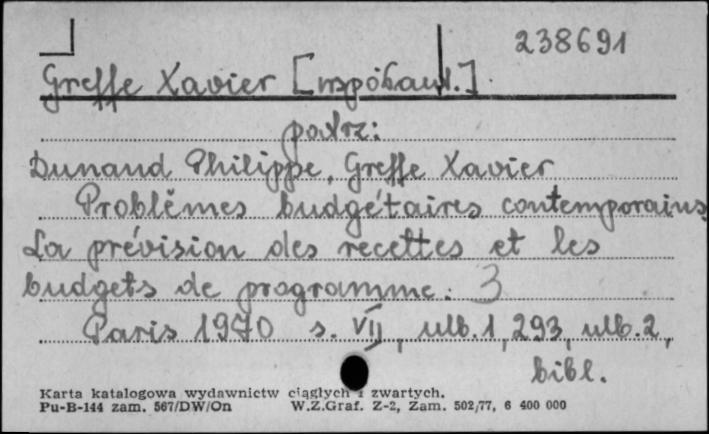 238691
Greffe Xavier [współaut.]
patrz:
Dunand Philippe, Greffe Xavier
Problèmes budgétaires contemporains.
La prévision des recettes et les
budgets de programme. 3
Paris 1970 s. VII, ulb. 1, 293, ulb. 2,
bibl.
Karta katalogowa wydawnictw ciągłych i zwartych.
Pu-B-144 zam. 567/DW/On W.Z.Graf. Z-2, Zam. 502/77, 6 400 000